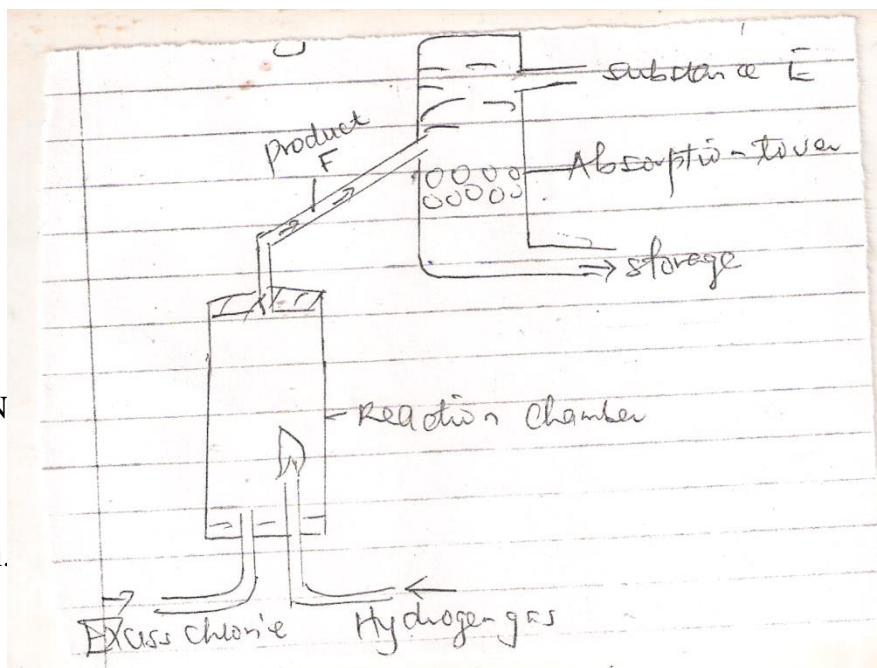 substance E
product
F
Absorption tower
storage
Reaction chamber
N
Excess chlorine
Hydrogen gas